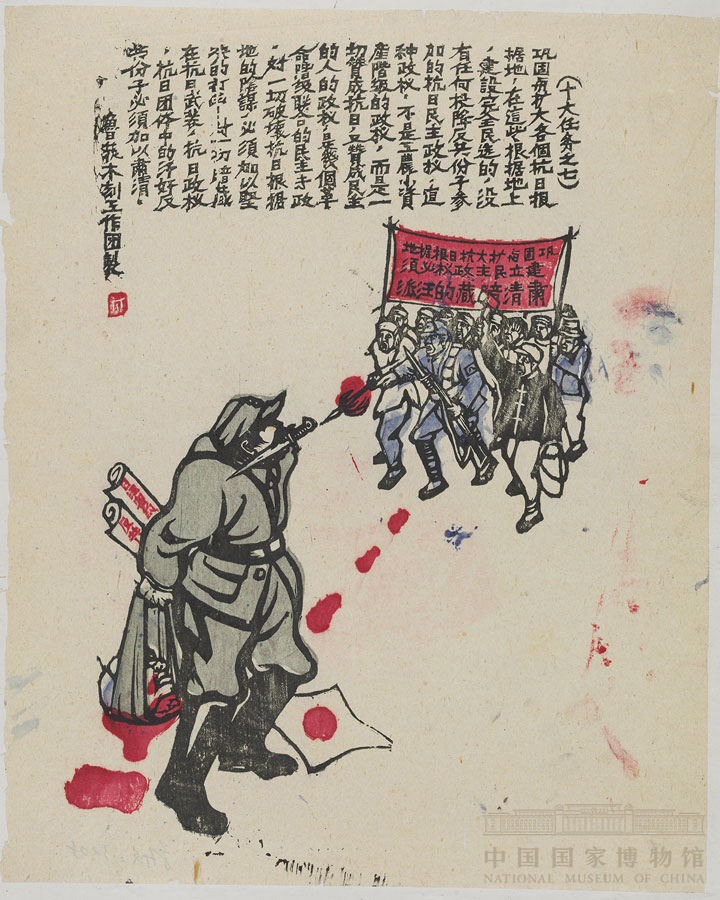 （十大任务之七）
巩固与扩大各個抗日根
据地，在這些根据地上
，建設完全民选的，没
有任何投降反共份子参
加的抗日民主政权，這
种政权，不是工農小資
產階级的政权，而是一
切赞成抗日，又赞成民主
的人的政权，是幾個革
命階级联合的民主专政
，对一切破壞抗日根据
地的陰謀，必須加以堅
决的打击，对一切暗藏
在抗日武装，抗日政权
，抗日团体中的汗奸反
共份子必須加以肃清。
鲁藝木刻工作团製
巩固与扩大抗日根据地
建立民主政权必須
肃清暗藏的汪派
中国国家博物馆
NATIONAL MUSEUM OF CHINA